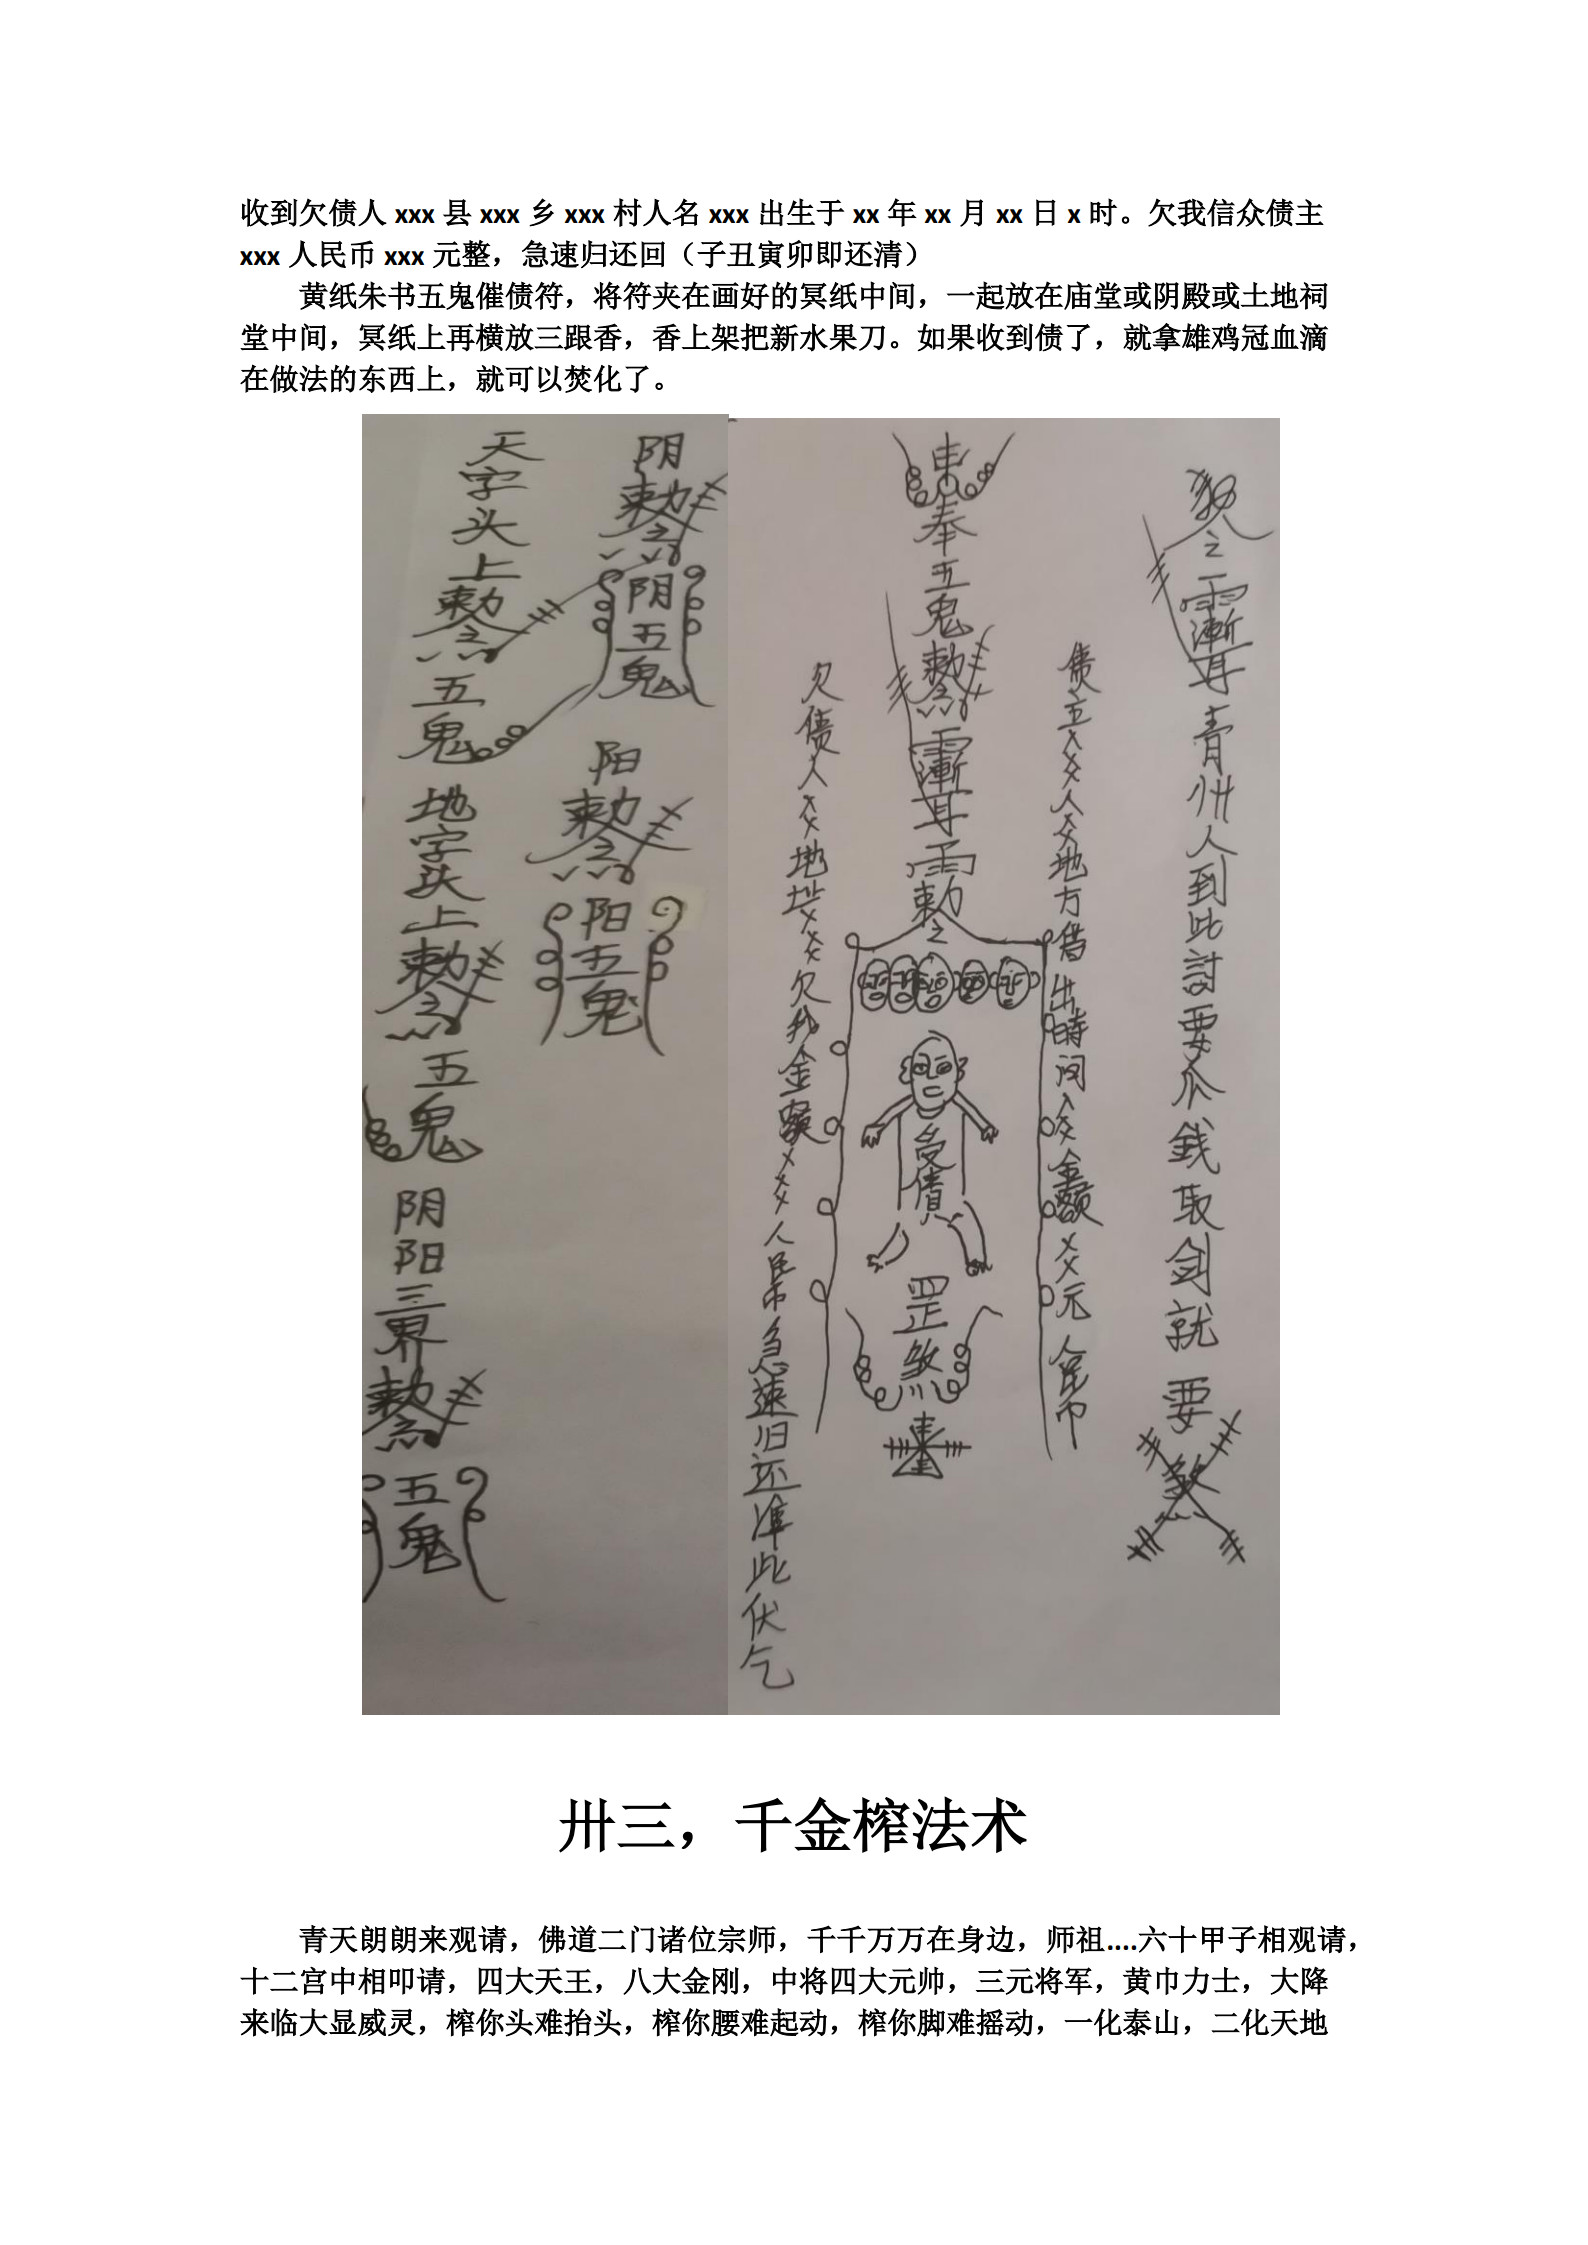 收到欠债人 xxx 县 xxx 乡 xxx 村人名 xxx 出生于 xx 年 xx 月 xx 日 x 时。欠我信众债主
xxx 人民币 xxx 元整，急速归还回（子丑寅卯即还清）
黄纸朱书五鬼催债符，将符夹在画好的冥纸中间，一起放在庙堂或阴殿或土地祠
堂中间，冥纸上再横放三跟香，香上架把新水果刀。如果收到债了，就拿雄鸡冠血滴
在做法的东西上，就可以焚化了。
天字头上敕令五鬼地字头上敕令五鬼阴阳三界敕令五鬼
阴敕令阴五鬼
阳敕令阳五鬼
欠债人××地址××欠我金额×××人民币急速归还准此伏气
奉五鬼敕
敕令
受债
罡煞
债主××人××地方借出時间××金额××元人民币
青州人到此討要个錢取剑就要
卅三，千金榨法术
青天朗朗来观请，佛道二门诸位宗师，千千万万在身边，师祖....六十甲子相观请，
十二宫中相叩请，四大天王，八大金刚，中将四大元帅，三元将军，黄巾力士，大降
来临大显威灵，榨你头难抬头，榨你腰难起动，榨你脚难摇动，一化泰山，二化天地